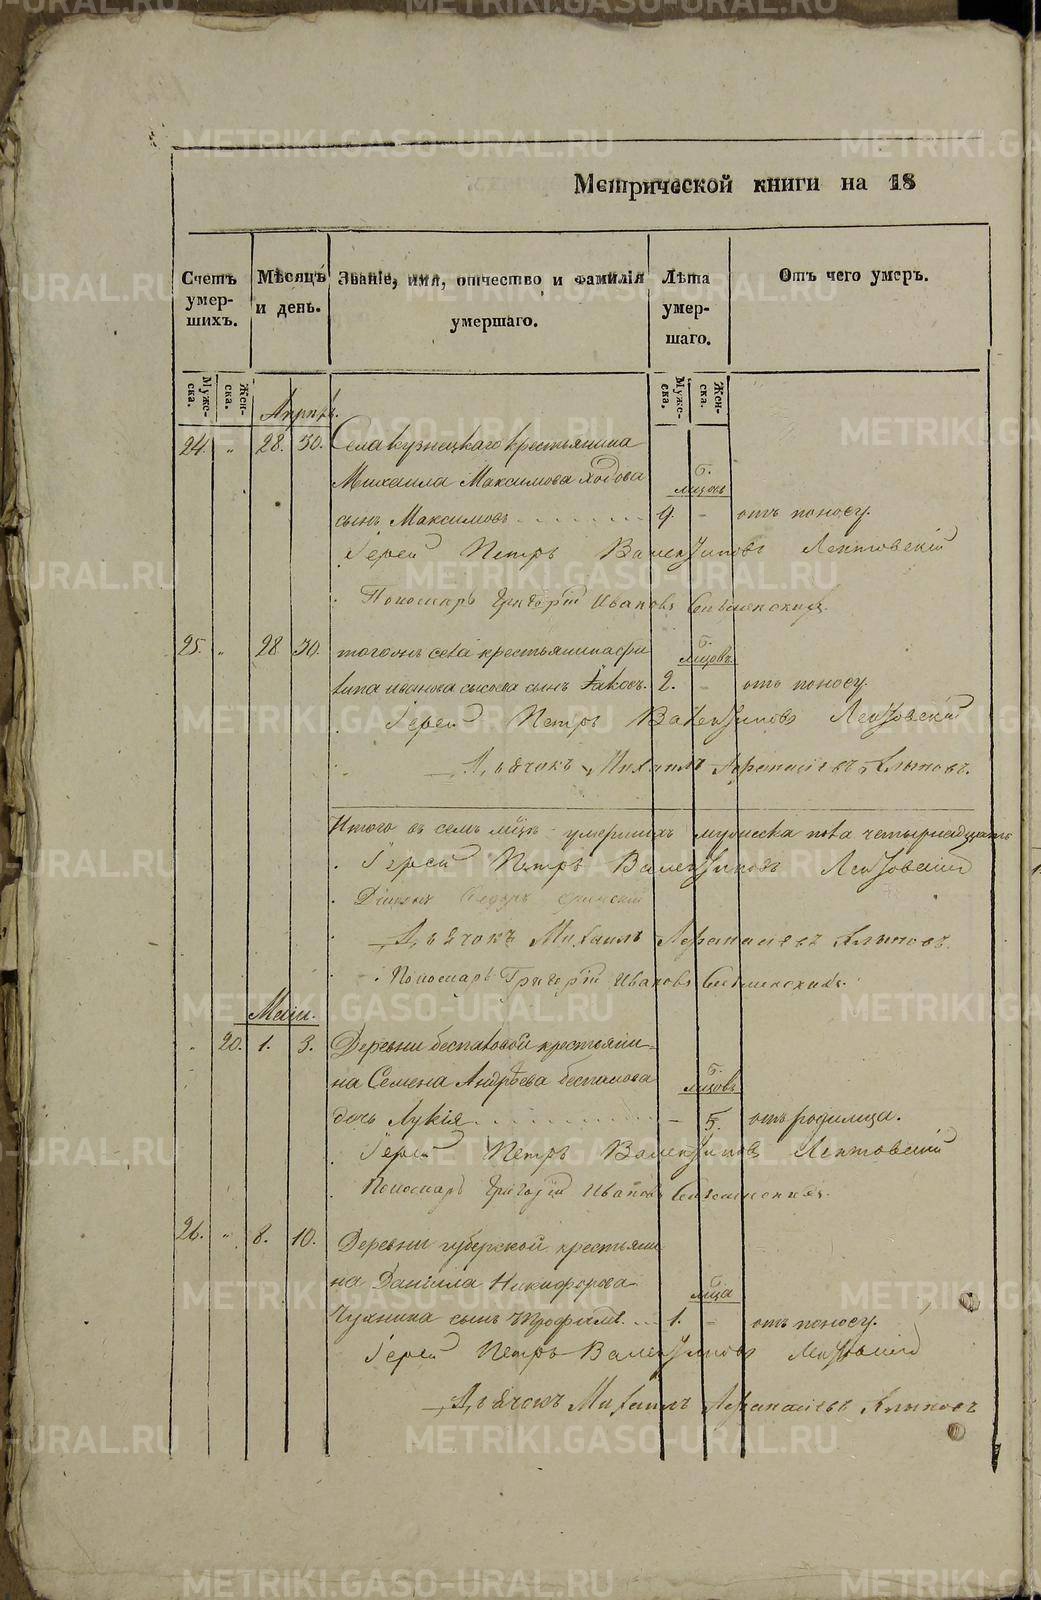 METRIKI.GASO-URAL.RU
Метрической книги на 18
Счетъ умершихъ.
Мѣсяцъ и день.
Званіе, имя, отчество и фамилія умершаго.
Лѣта умершаго.
Отъ чего умеръ.
Мужеска.
Женска.
Мужеска.
Женска.
Апрѣль.
24. „ 28. 30. Села кузнецкаго крестьянина
Михаила Максимова Ходова
мцовъ
сынъ Максимовъ 9. - отъ поносу.
Іерей Петръ Валентиновъ Лептовскій
Пономарь Григорій Ивановъ
25. „ 28 30. тогожъ села крестьянина фи
мцовъ
липа иванова сысоева сынъ Іаковъ. 2. - отъ поносу.
Іерей Петръ Валентиновъ Лептовскій
Дьячокъ Михаилъ Афанасіевъ Клыповъ.
Итого въ семъ мцѣ умершихъ мужеска пола четырнадцать
Іерей Петръ Валентиновъ Лептовскій
Діаконъ Федоръ
Дьячокъ Михаилъ Афанасіевъ Клыповъ.
Пономарь Григорій Ивановъ
Маіи.
„ 20. 1. 3. Деревни беспаловой крестьяни-
на Семена Андрѣева беспалова
мцовъ
дочь Лукія - 5. отъ родимца.
Іерей Петръ Валентиновъ Лептовскій
Пономарь Григорій Ивановъ
26. „ 8. 10. Деревни губерской крестьяни
на Даніила Никифорова
мца
Чухнина сынъ Трофимъ. 1. - отъ поносу.
Іерей Петръ Валентиновъ Лептовскій
Дьячокъ Михаилъ Афанасіевъ Клыповъ